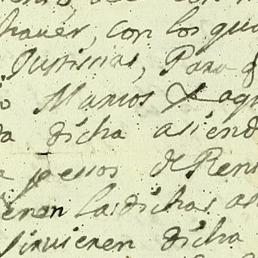 haver, con los qua
Justicias, Para q
Marcos & aqu
dicha asiend
a pessos de Ren
eren las dichas as
sirvieren dicha